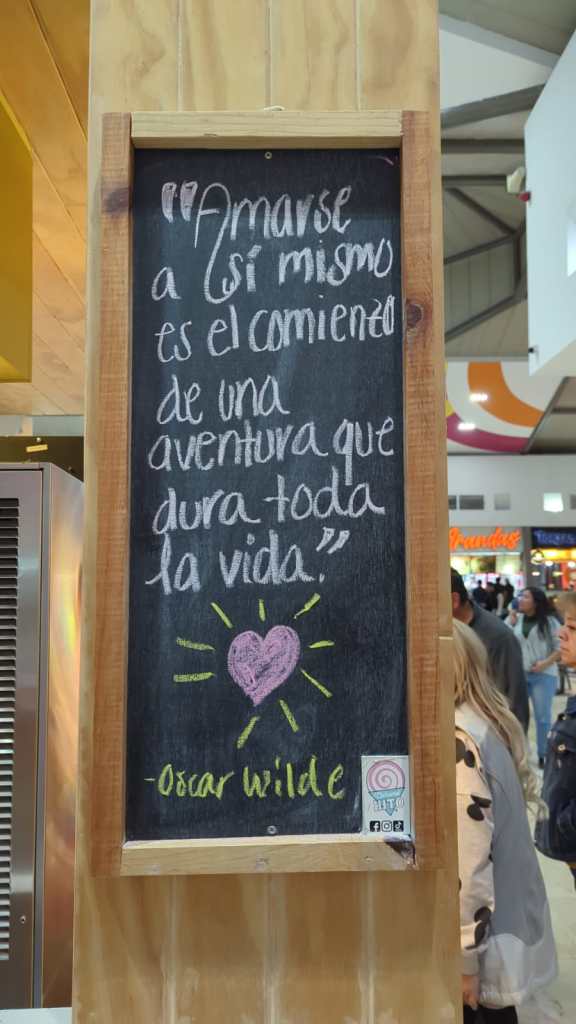 "Amarse
a sí mismo
es el comienzo
de una
aventura que
dura toda
la vida."
-Oscar Wilde